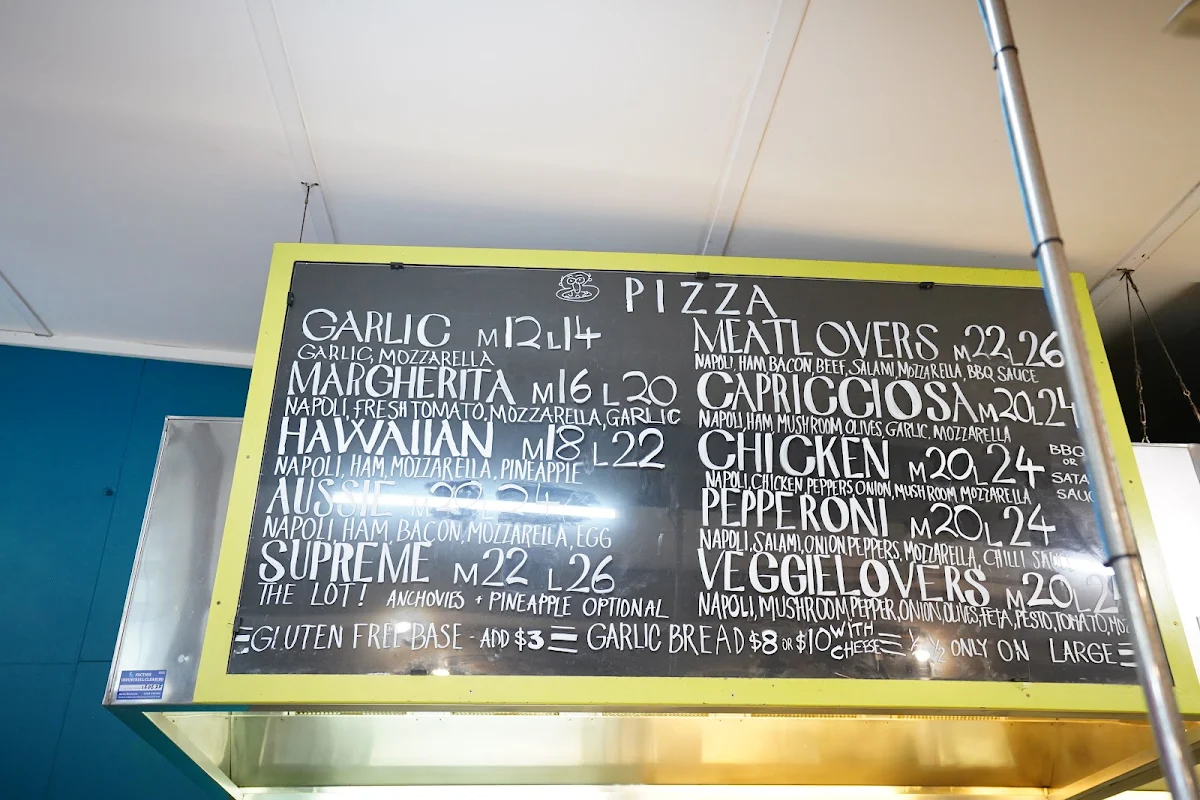 PIZZA
GARLIC M12 L14
GARLIC, MOZZARELLA
MARGHERITA M16 L20
NAPOLI, FRESH TOMATO, MOZZARELLA, GARLIC
HAWAIIAN M18 L22
NAPOLI, HAM, MOZZARELLA, PINEAPPLE
AUSSIE M22 L24
NAPOLI, HAM, BACON, MOZZARELLA, EGG
SUPREME M22 L26
THE LOT! ANCHOVIES + PINEAPPLE OPTIONAL
MEATLOVERS M22 L26
NAPOLI, HAM, BACON, BEEF, SALAMI, MOZZARELLA, BBQ SAUCE
CAPRICCIOSA M20 L24
NAPOLI, HAM, MUSHROOM OLIVES, GARLIC, MOZZARELLA
CHICKEN M20 L24 BBQ
OR
NAPOLI, CHICKEN PEPPERS, ONION, MUSHROOM MOZZARELLA
PEPPERONI M20 L24
NAPOLI, SALAMI, ONION PEPPERS, MOZZARELLA, CHILLI
VEGGIELOVERS M20
NAPOLI, MUSHROOM, PEPPER, ONION, OLIVES, FETA, PESTO, TOMATO,
GLUTEN FREE BASE - ADD $3 GARLIC BREAD $8 OR $10 WITH CHEESE ½ ½ ONLY ON LARGE